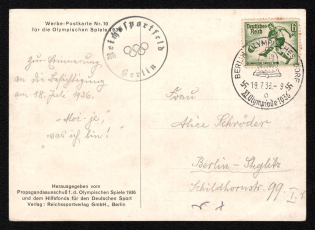 Werbe-Postkarte Nr. 10
für die Olympischen Spiele
Zur Erinnerung
an die Besichtigung
am 18. Juli 1936.
Reichssportfeld
Berlin
Deutsches Reich
6
BERLIN OLYMPIA
DORF
19.7.36.-9
XI. Olympiade 1936
Frau
Alice Schröder
Berlin-Steglitz
Schildhornstr. 99 I
Herausgegeben vom
Propagandaausschuß f. d. Olympischen Spiele 1936
und dem Hilfsfonds für den Deutschen Sport
Verlag: Reichssportverlag GmbH., Berlin